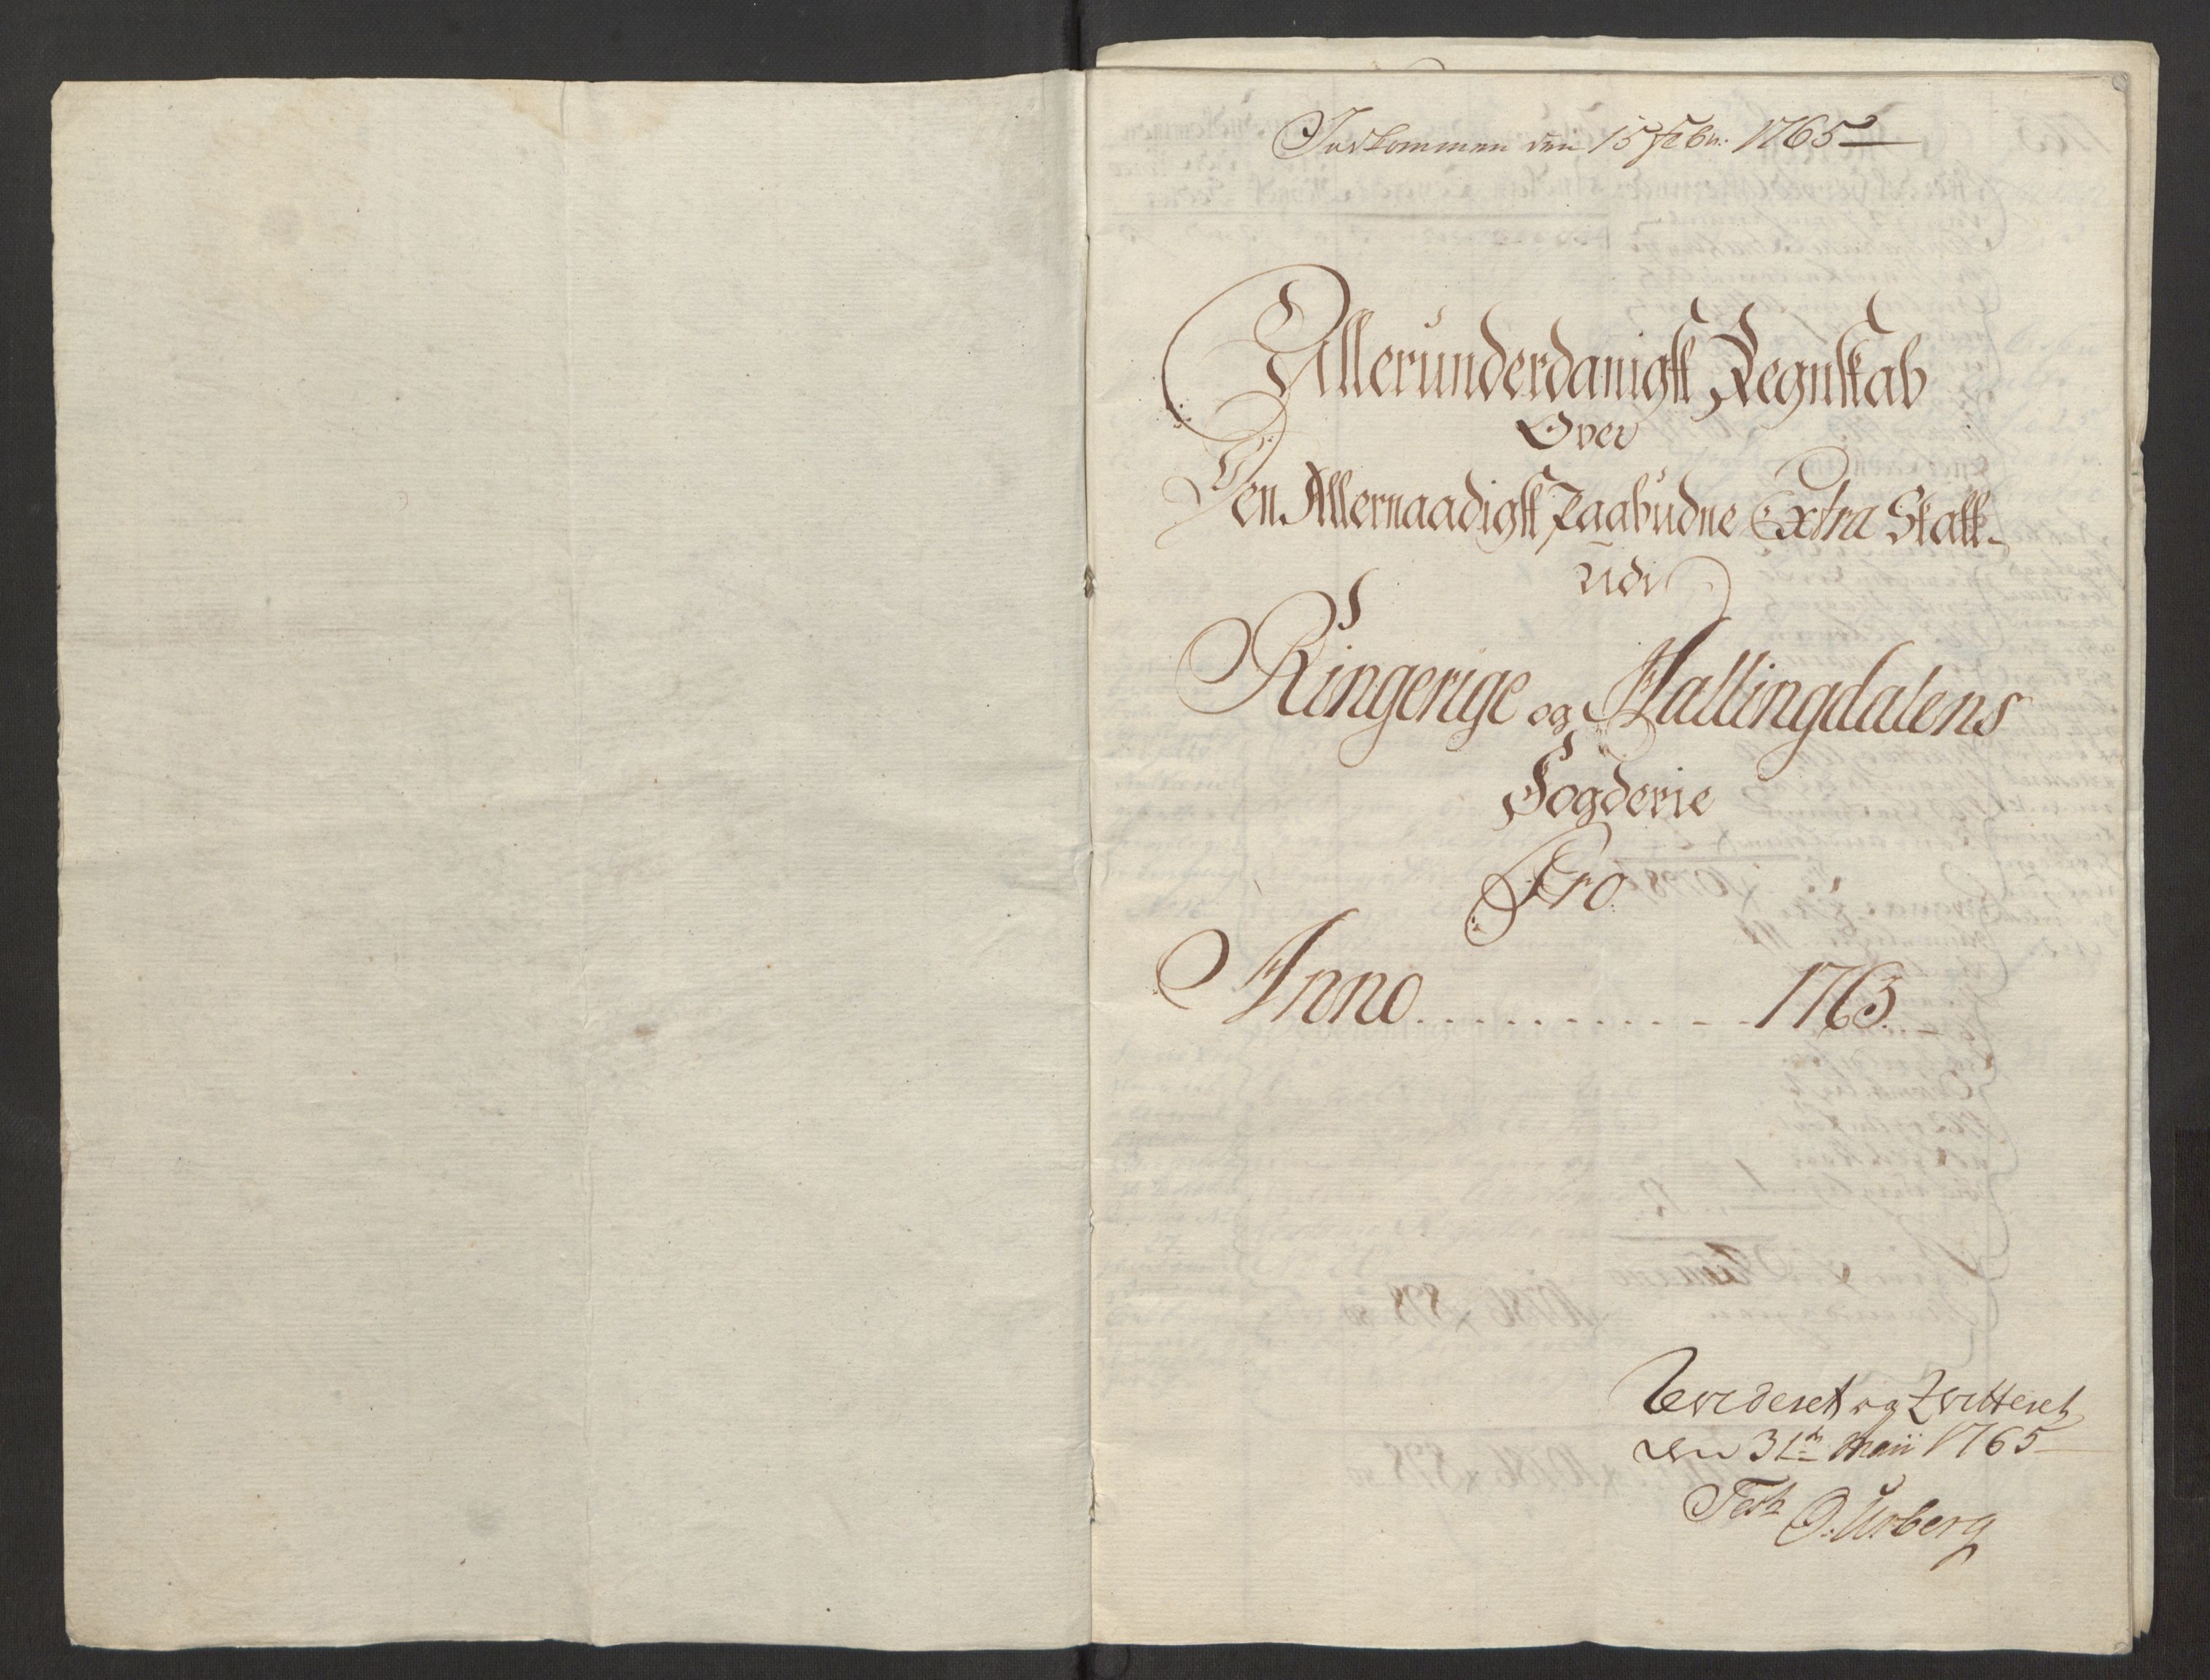 Indkommen den 15 Febr: 1765
Allerunderdanigst Regnskab
Over
Den Allernaadigst Paabudne Extra Skatt
Udi
Ringerige og Hallingdalens
Fogderie
Pro
Anno . . . . . . . . . . . 1763.
Revideret og Qvitteret
den 31te Maii 1765
Test O: Urberg